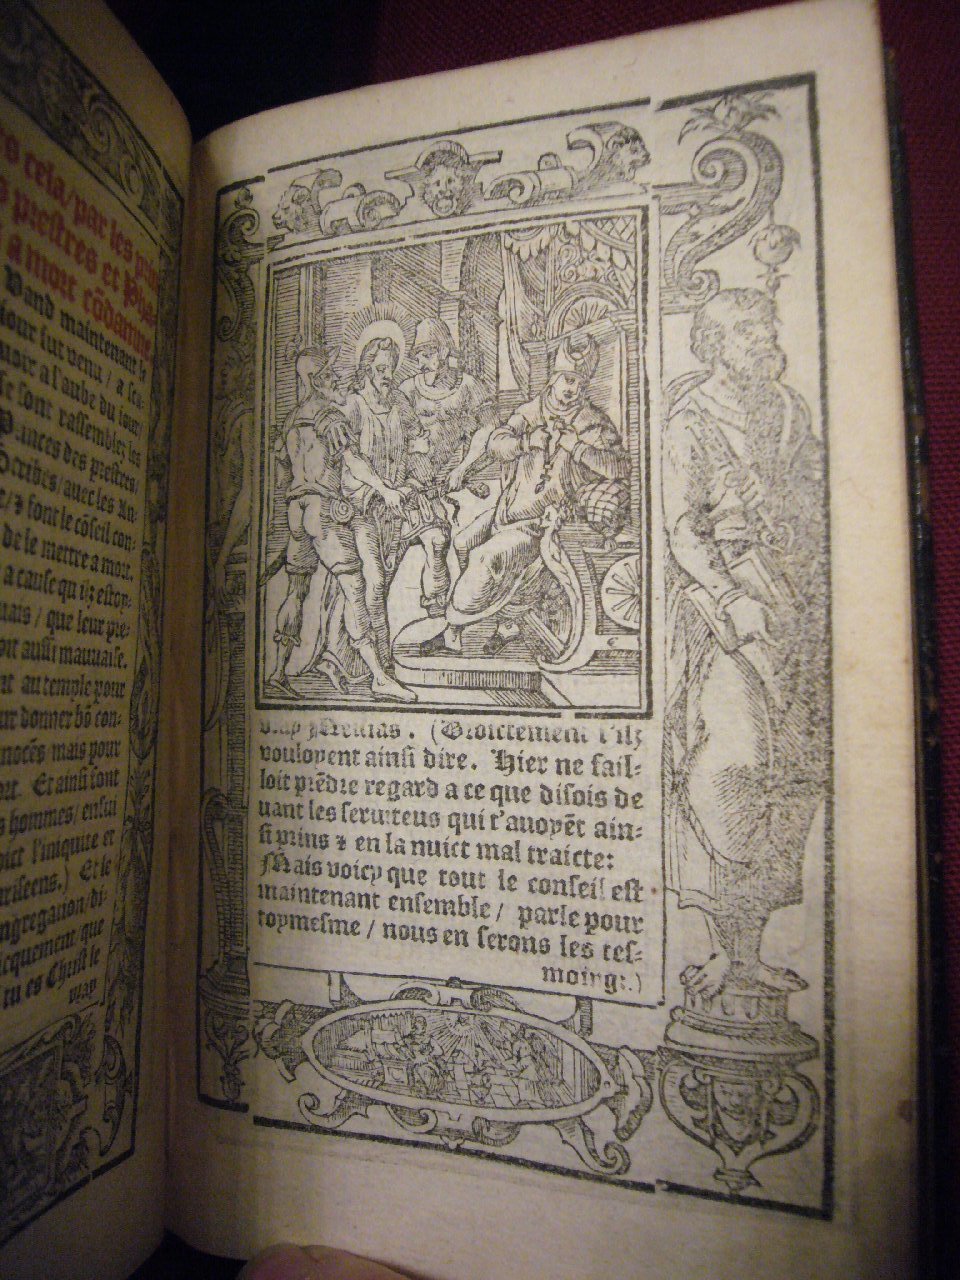 cela / par les
prestres et
a mort cōdamne
Vand maintenant le
iour fut venu / a sca-
uoir a l'aube du iour /
se sont rassemblez les
Princes des prestres /
Scribes / auec les An-
& font le cōseil con-
de le mettre a mort.
a cause qu'ilz estoy-
mauuais / que leur
aussi mauuaise.
au temple pour
donner bō con-
mais pour
Et ainsi sont
hommes / ensui
l'iniquite et
Et le
di-
que
tu es Christ le
vray
vray Messias. (Droictement s'ilz
vouloyent ainsi dire. Hier ne fail-
loit prēdre regard a ce que disois de
uant les seruiteus qui t'auoyēt ain-
si prins & en la nuict mal traicte:
Mais voicy que tout le conseil est
maintenant ensemble / parle pour
toymesme / nous en serons les tes-
moingz.)